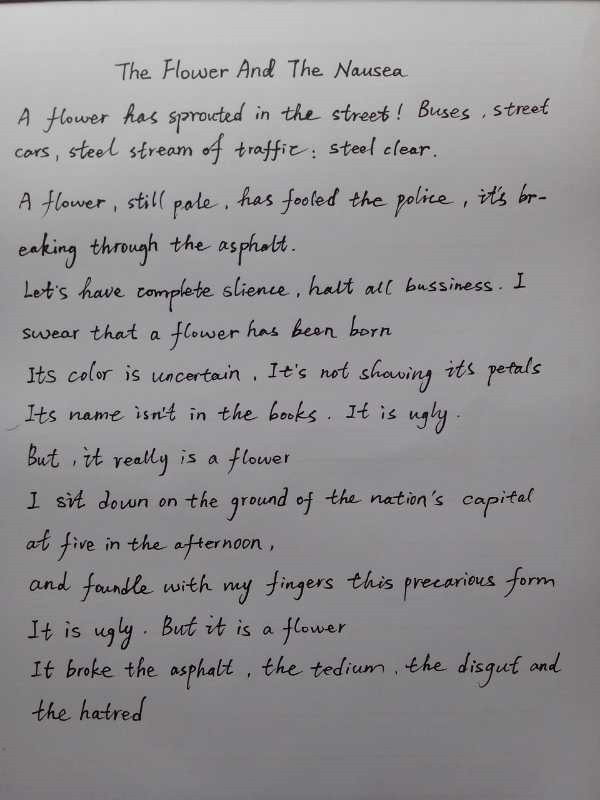 The Flower And The Nausea
A flower has sprouted in the street! Buses, street
cars, steel stream of traffic: steel clear.
A flower, still pale, has fooled the police, it's br-
eaking through the asphalt.
Let's have complete slience, halt all bussiness. I
swear that a flower has been born
Its color is uncertain, It's not showing its petals
Its name isn't in the books. It is ugly.
But, it really is a flower
I sit down on the ground of the nation's capital
at five in the afternoon,
and foundle with my fingers this precarious form
It is ugly. But it is a flower
It broke the asphalt, the tedium, the disgut and
the hatred